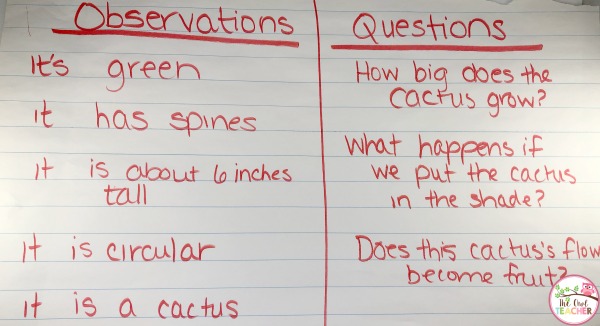 Observations
It's green
it has spines
it is about 6 inches
tall
it is circular
it is a cactus
Questions
How big does the
cactus grow?
What happens if
we put the cactus
in the shade?
Does this cactus's flow
become fruit?
The Owl
TEACHER